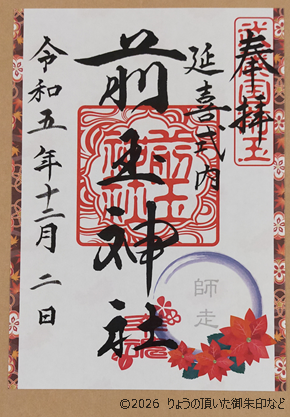 奉拝
延喜式内
前玉神社
令和五年十二月二日
師走
©2026 りょうの頂いた御朱印など